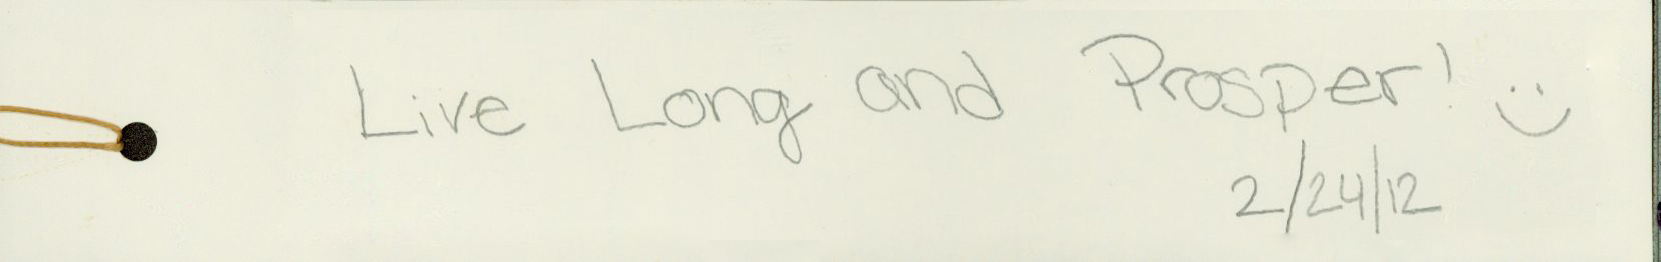 Live Long and Prosper! :)
2/24/12